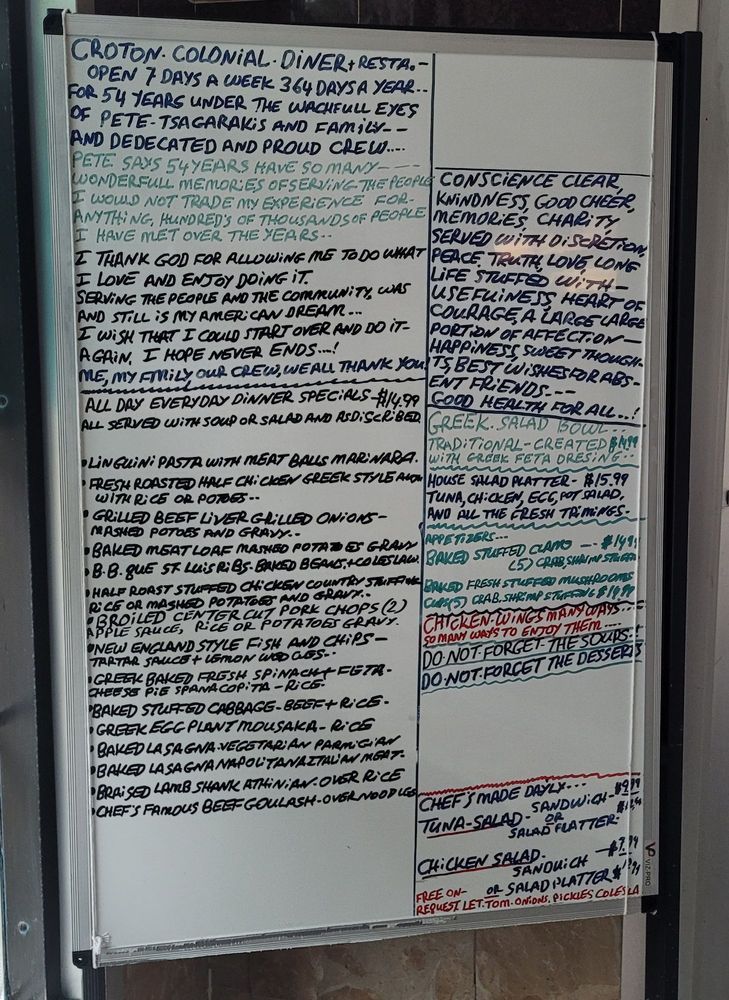 CROTON. COLONIAL. DINER + RESTA.-
OPEN 7 DAYS A WEEK 364 DAYS A YEAR..
FOR 54 YEARS UNDER THE WACHFULL EYES
OF PETE-TSAGARAKIS AND FAMILY--
AND DEDECATED AND PROUD CREW....
PETE SAYS 54 YEARS HAVE SO MANY----
WONDERFULL MEMORIES OF SERVING THE PEOPLE
I WOULD NOT TRADE MY EXPERIENCE FOR-
ANYTHING, HUNDRED'S OF THOUSANDS OF PEOPLE
I HAVE MET OVER THE YEARS--
I THANK GOD FOR ALLOWING ME TO DO WHAT
I LOVE AND ENJOY DOING IT.
SERVING THE PEOPLE AND THE COMMUNITY, WAS
AND STILL IS MY AMERICAN DREAM....
I WISH THAT I COULD START OVER AND DO IT-
AGAIN, I HOPE NEVER ENDS...!
ME, MY FMILY OUR CREW, WE ALL THANK YOU!
ALL DAY EVERYDAY DINNER SPECIALS-$14.99
ALL SERVED WITH SOUP OR SALAD AND ASDISCRIBED
• LINGUINI PASTA WITH MEAT BALLS MARINARA.
• FRESH ROASTED HALF CHICKEN GREEK STYLE
WITH RICE OR POTOES--
• GRILLED BEEF LIVER GRILLED ONIONS-
MASHED POTOES AND GRAVY..
• BAKED MEAT LOAF MASHED POTATOES GRAVY
• B.B.QUE ST LUIS RIBS-BAKED BEANS, + COLESLAW.
• HALF ROAST STUFFED CHICKEN COUNTRY STUFFING
RICE OR MASHED POTATOES AND GRAVY..
• BROILED CENTER CUT PORK CHOPS (2)
APPLE SAUCE, RICE OR POTATOES GRAVY.
• NEW ENGLAND STYLE FISH AND CHIPS-
TARTAR SAUCE + LEMON
• GREEK BAKED FRESH SPINACH + FETA-
CHEESE PIE SPANACOPITA - RICE.
BAKED STUFFED CABBAGE-BEEF + RICE.
• GREEK EGG PLANT MOUSAKA- RICE
• BAKED LASAGNA-VEGETARIAN PARMIGIAN
• BAKED LASAGNA NAPOLITANA ITALIAN MEAT.
• BRAISED LAMB SHANK ATHINIAN-OVER RICE
• CHEF'S FAMOUS BEEF GOULASH-OVER NOODLES
CONSCIENCE CLEAR,
KNINDNESS, GOOD CHEER,
MEMORIES, CHARITY,
SERVED WITH DISCRETION,
PEACE TRUTH, LOVE, LONG
LIFE STUFFED WITH-
USEFULNESS, HEART OF
COURAGE, A LARGE LARGE
PORTION OF AFFECTION-
HAPPINESS, SWEET THOUGH-
TS, BEST WISHES FOR ABS-
ENT FRIENDS.--
GOOD HEALTH FOR ALL..!
GREEK. SALAD BOWL...
TRADITIONAL-CREATED $14.99
WITH GREEK FETA DRESING..
HOUSE SALAD PLATTER- $15.99
TUNA, CHICKEN, EGG, POT SALAD,
AND ALL THE FRESH TRIMINGS.
APPETIZERS...
BAKED STUFFED CLAMS --- $14.99
(5) CRAB, SHRIMP STUFFING
BAKED FRESH STUFFED MUSHROOMS
CUPS (5) CRAB, SHRIMP STUFFING $14.99
CHICKEN-WINGS MANY WAYS...
SO MANY WAYS TO ENJOY THEM....
DO.NOT.FORGET-THE SOUPS..
DO.NOT.FORGET THE DESSERTS
CHEF'S MADE DAYLY... $9.99
TUNA-SALAD-SANDWICH-
OR
SALAD PLATTER-
CHICKEN SALAD. - $7.99
SANDWICH
OR SALAD PLATTER
FREE ON-
REQUEST LET. TOM. ONIONS, PICKLES COLESLA
VIZ-PRO